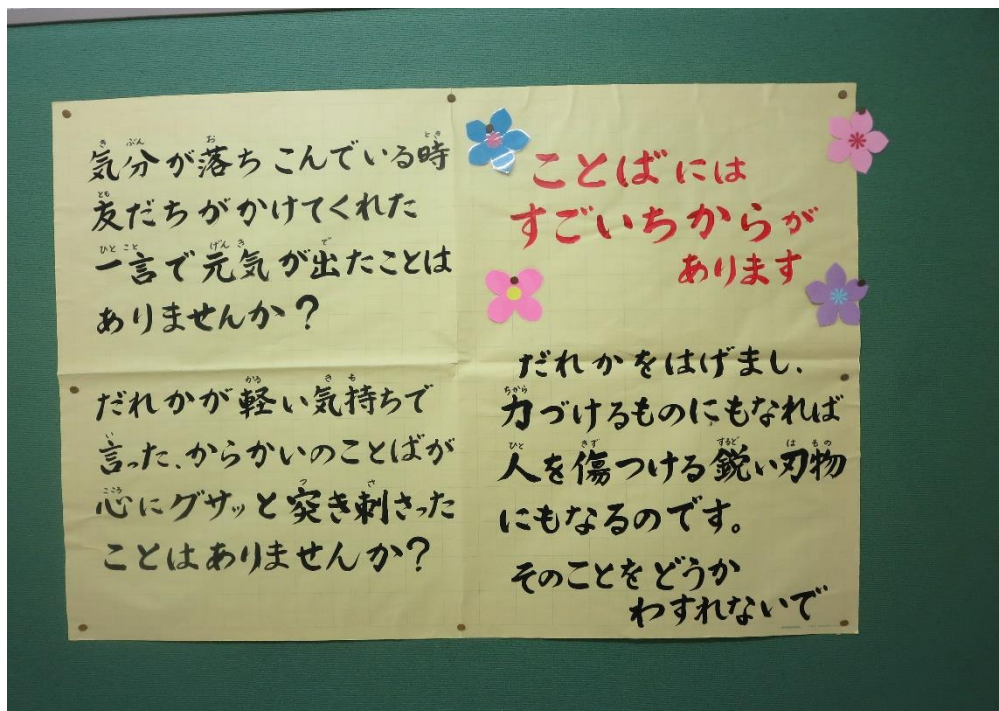 気分が落ちこんでいる時
友だちがかけてくれた
一言で元気が出たことは
ありませんか?
だれかが軽い気持ちで
言った、からかいのことばが
心にグサッと突き刺さった
ことはありませんか?
ことばには
すごいちからが
あります
だれかをはげまし、
力づけるものにもなれば
人を傷つける鋭い刃物
にもなるのです。
そのことをどうか
わすれないで